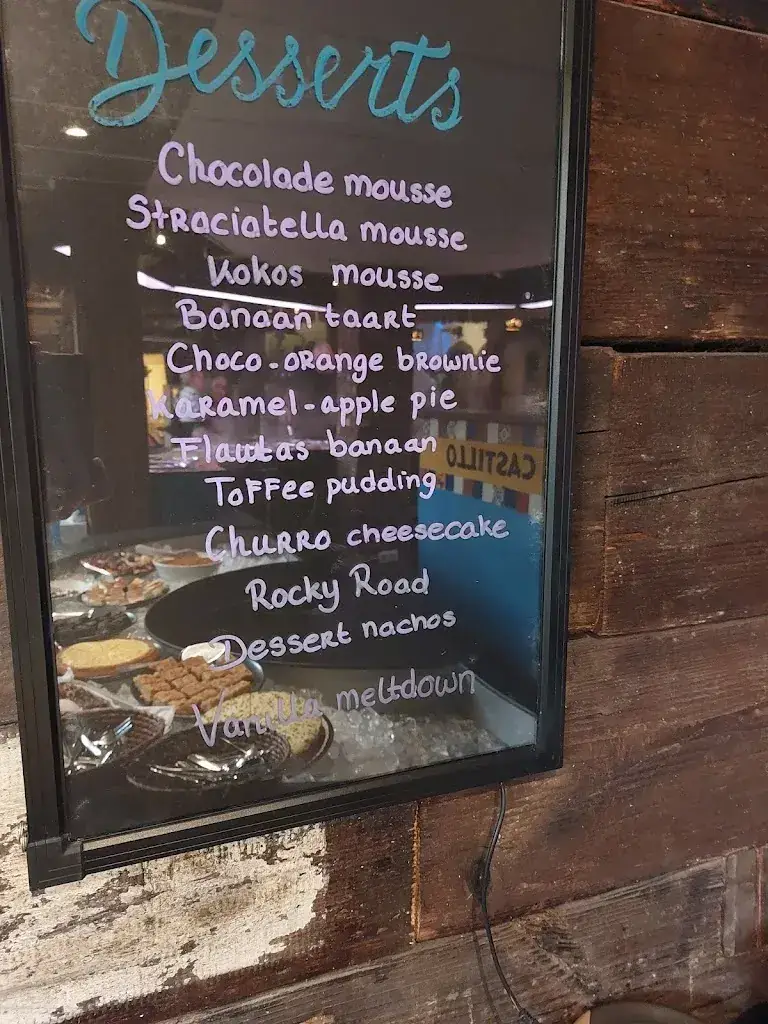 Desserts
Chocolade mousse
Straciatella mousse
Kokos mousse
Banaan taart
Choco-orange brownie
Karamel-apple pie
Flautas banaan
CASTILLO
Toffee pudding
Churro cheesecake
Rocky Road
Dessert nachos
Vanilla meltdown